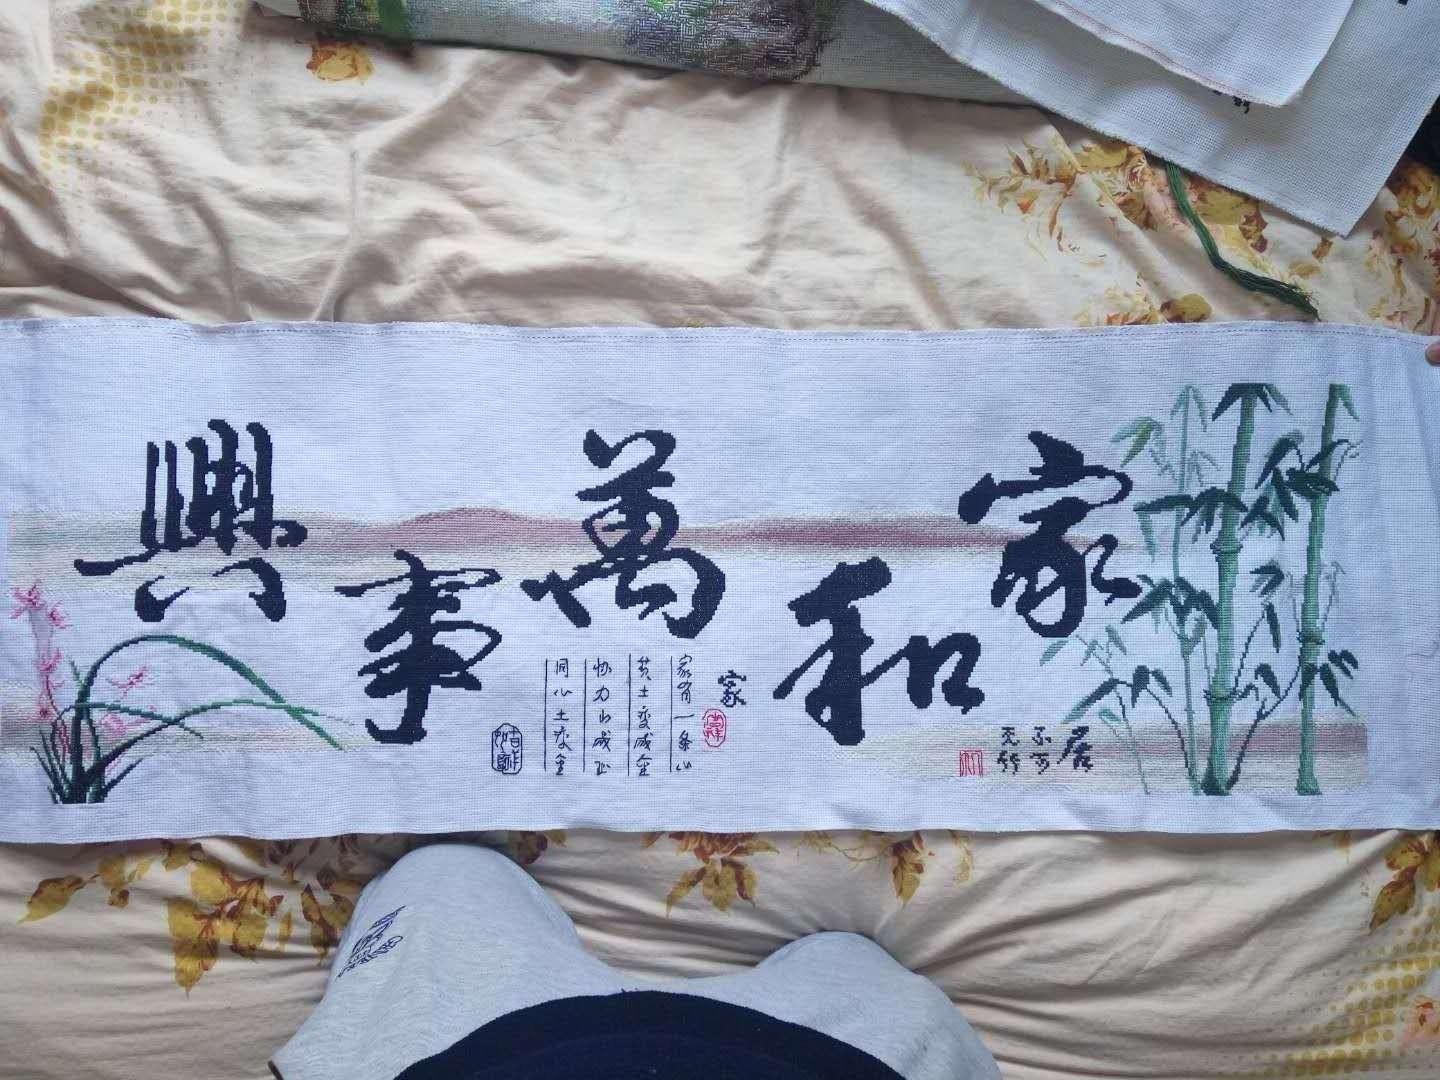 家和萬事興
居
不可
无竹
家
家有一条心
黄土变成金
协力山成玉
同心土变金
吉祥